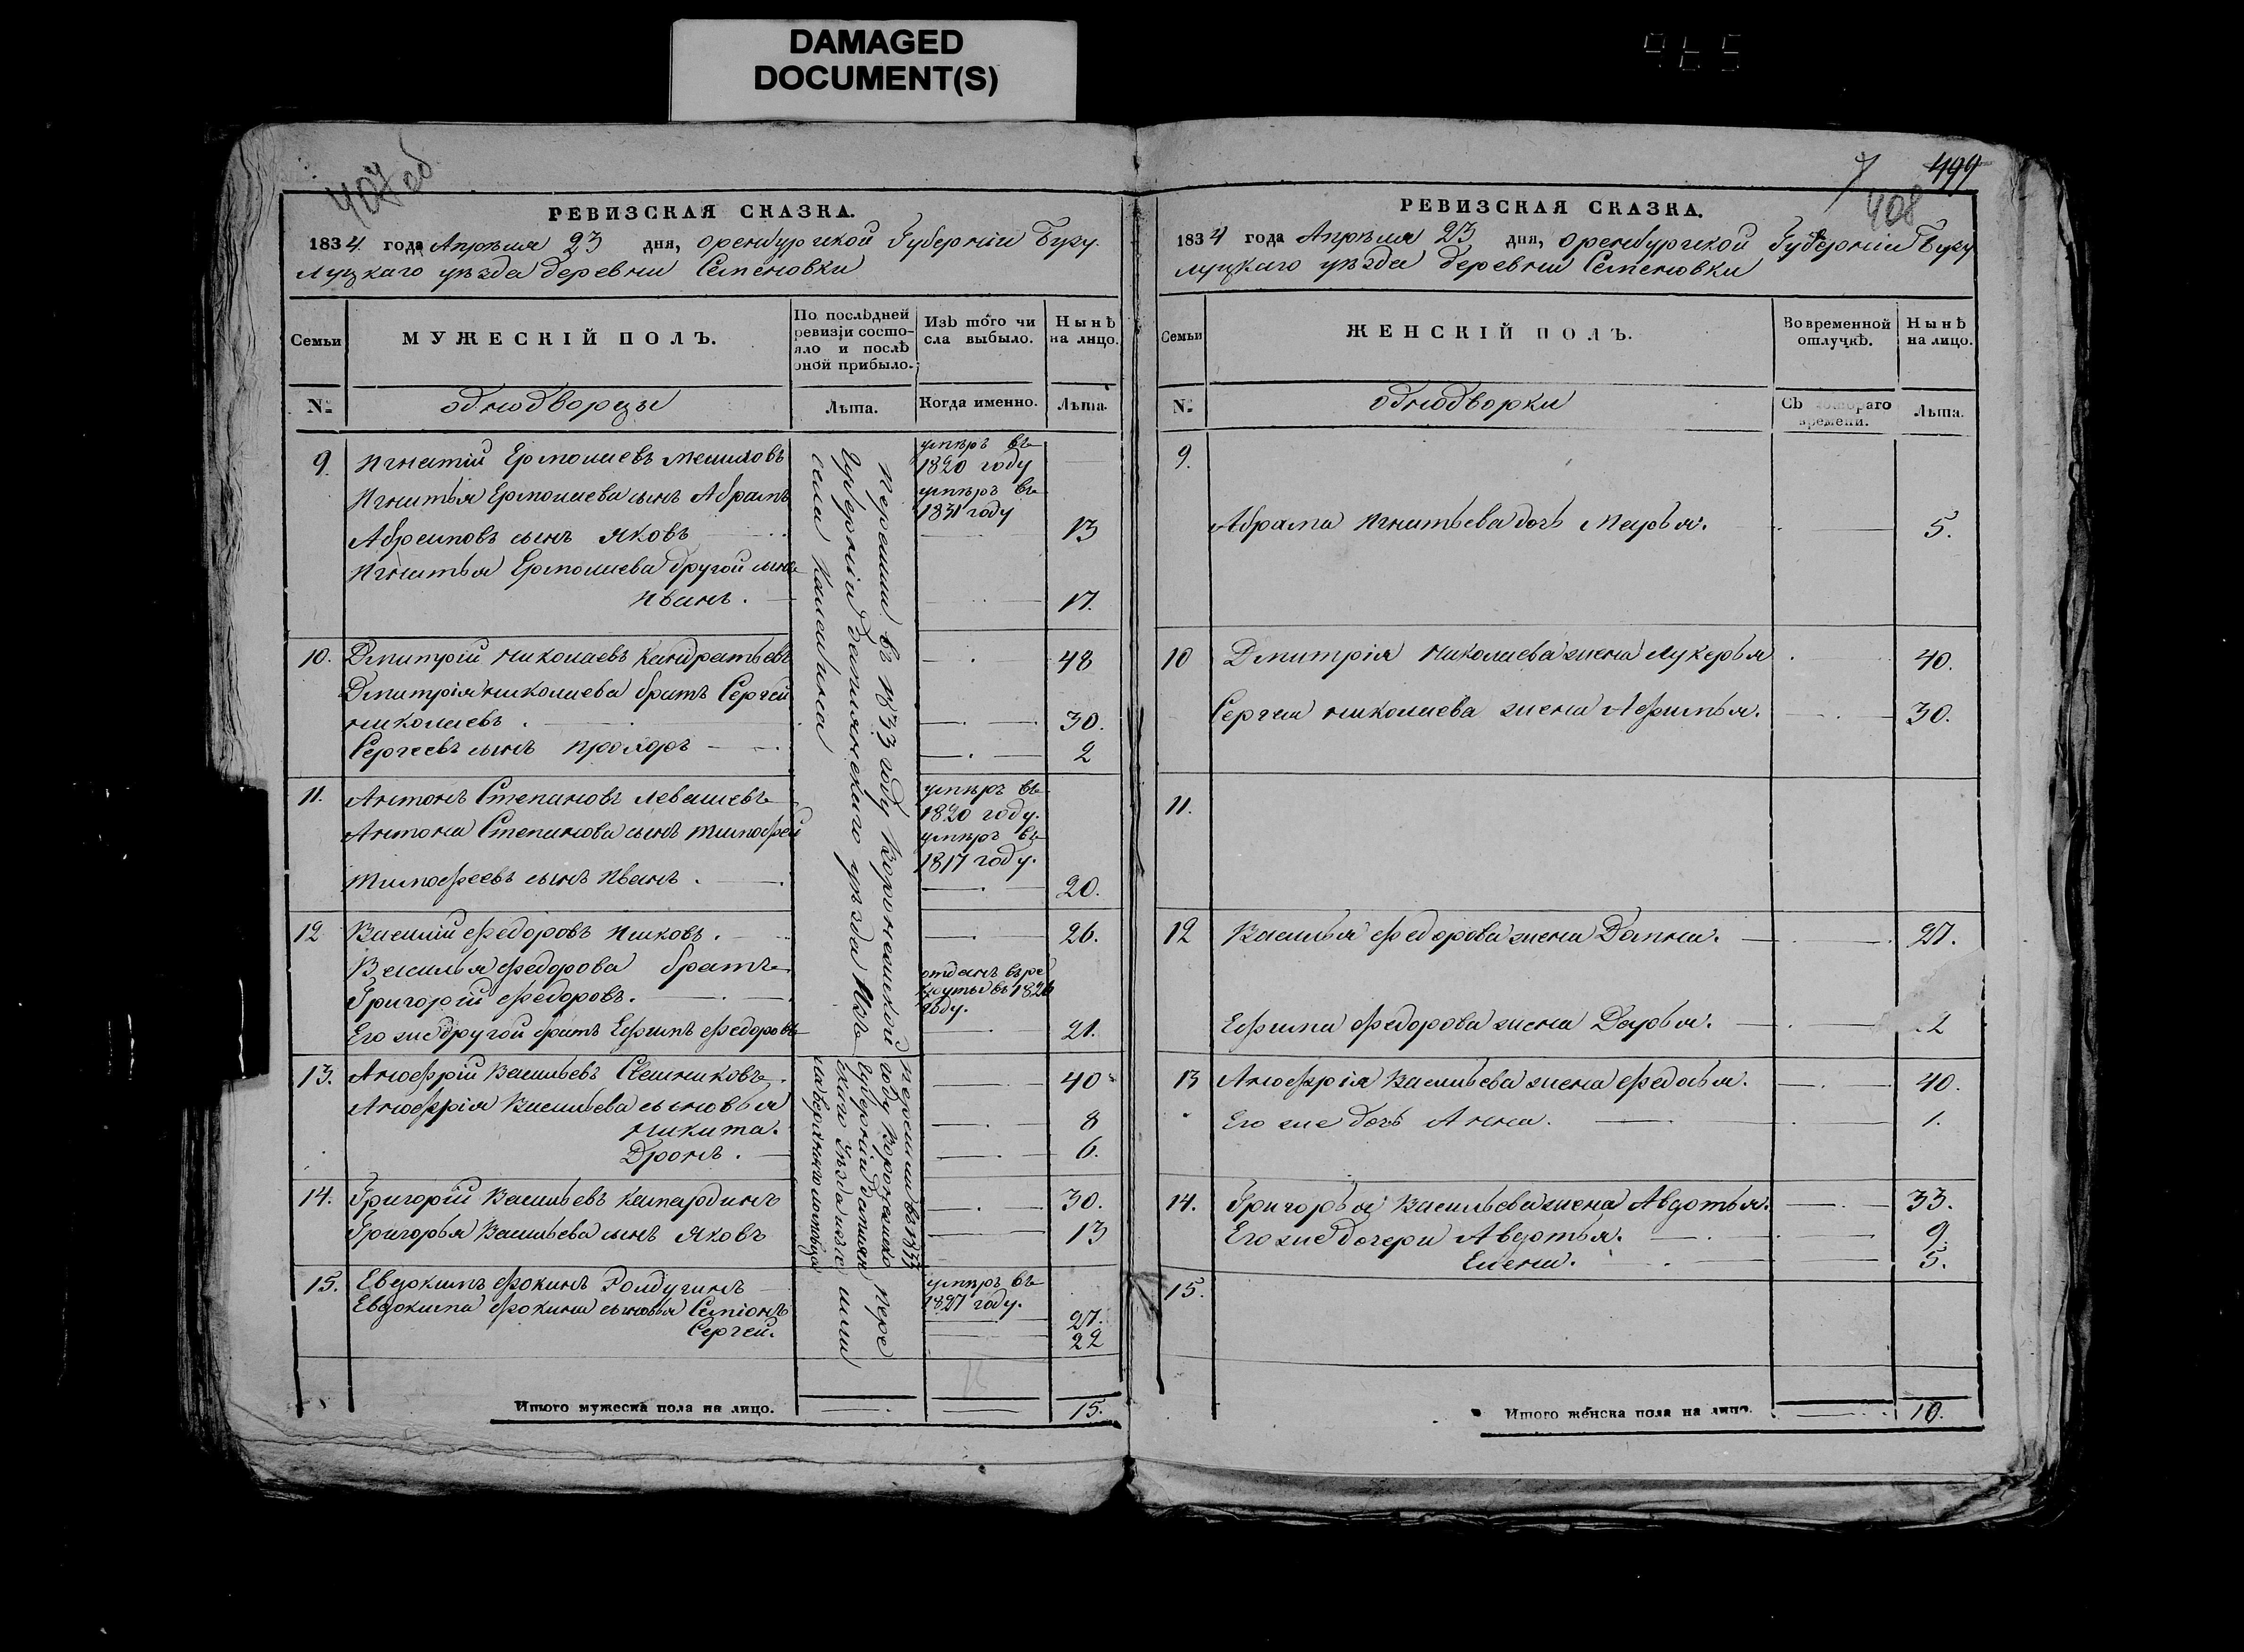 DAMAGED
DOCUMENT(S)
407 об
РЕВИЗСКАЯ СКАЗКА.
1834 года Апреля 23 дня, Оренбургской Губернiи Бугу
луцкаго уѣзда деревни Семеновки
Семьи
МУЖЕСКІЙ ПОЛЪ.
По послѣдней
ревизiи состо-
яло и послѣ
оной прибыло.
Изъ того чи
сла выбыло.
Нынѣ
на лицо.
№
однодворцы
Лѣта.
Когда именно.
Лѣта.
9. Игнатiй Ермолаевъ умѣръ въ
1820 году
Игнатья Ермолаева сынъ Абрамъ умѣръ въ
1831 году
Абрамовъ сынъ Яковъ 13
Игнатья Ермолаева другой сынъ
Иванъ. 17.
10. Дмитрiй Николаевъ Кандратьевъ 48
Дмитрiя Николаева братъ Сергей
Николаевъ. 30.
Сергеевъ сынъ 2
11. Антонъ Степановъ Левашевъ умѣръ въ
1820 году.
Антона Степанова сынъ Тимофей умѣръ въ
1817 году.
Тимофеевъ сынъ Иванъ. 20.
12 Василiй Федоровъ 26.
Василья Федорова братъ
Григорiй Федоровъ. отданъ въ ре
круты въ 1826
году.
Его же другой братъ Ефимъ Федоровъ 21.
13. Анофрiй Васильевъ 40
Анофрiя Васильева сыновья
Никита. 8
Дронъ. 6.
14. Григорiй Васильевъ 30.
Григорья Васильева сынъ Яковъ 13
15. Евдокимъ Фокинъ умѣръ въ
1827 году.
Евдокима Фокина сыновья Семiонъ 27.
Сергей. 22
Перешли въ 1833 году Воронежской
Губернiи уѣзда Изъ
села
Перешли въ 1833
году Воронежско
Губернiи
уѣзда изъ
Пере
шли
Итого мужеска пола на лицо. 15.
7 499
408
РЕВИЗСКАЯ СКАЗКА.
1834 года Апреля 23 дня, Оренбургской Губернiи Бугу
луцкаго уѣзда деревни Семеновки
Семьи
ЖЕНСКІЙ ПОЛЪ.
Во временной
отлучкѣ.
Нынѣ
на лицо.
№
однодворки
Съ котораго
времени.
Лѣта.
9.
Абрама Игнатьева дочь Марья. 5.
10 Дмитрiя Николаева жена Лукерья 40.
Сергея Николаева жена Афимья. 30.
11.
12 Василья Федорова жена Домна. 27.
Ефима Федорова жена Дарья. 2
13 Анофрiя Васильева жена Федосья. 40.
Его же дочь Анна. 1.
14. Григорья Васильева жена Авдотья. 33.
Его же дочери Авдотья. 9.
Елена. 5.
15.
Итого женска пола на лицо. 10.